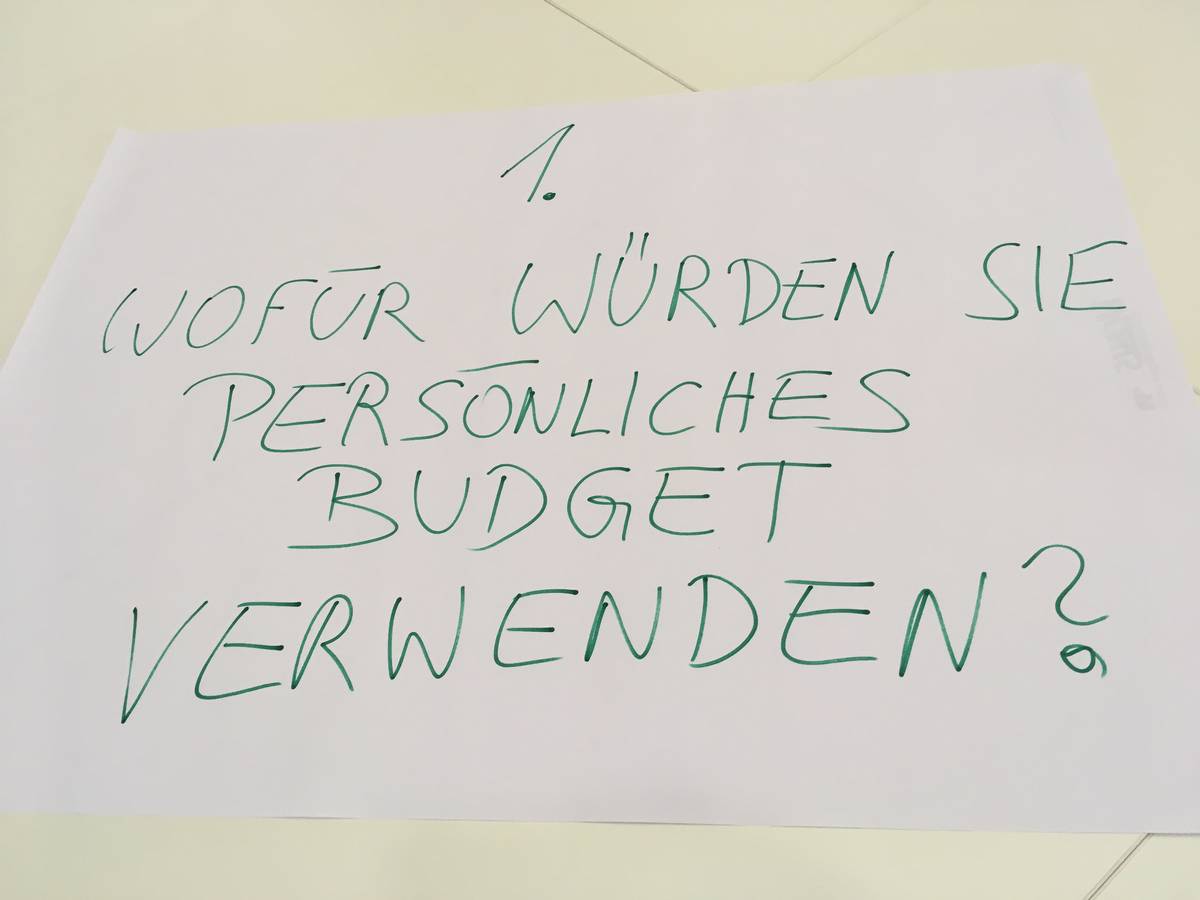 1.
WOFÜR WÜRDEN SIE
PERSÖNLICHES
BUDGET
VERWENDEN?